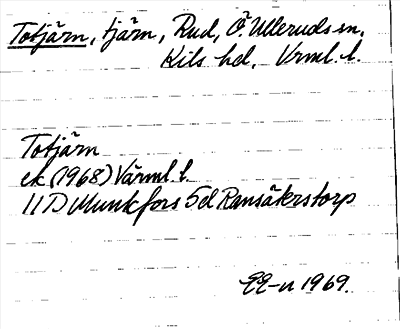 Totjärn, tjärn, Rud, Ö. Ulleruds sn,
Kils hd, Vrml. l.
Totjärn
ek (1968) Värml. l.
11 D Munkfors 5 d Ransäterstorp
EE-n 1969.